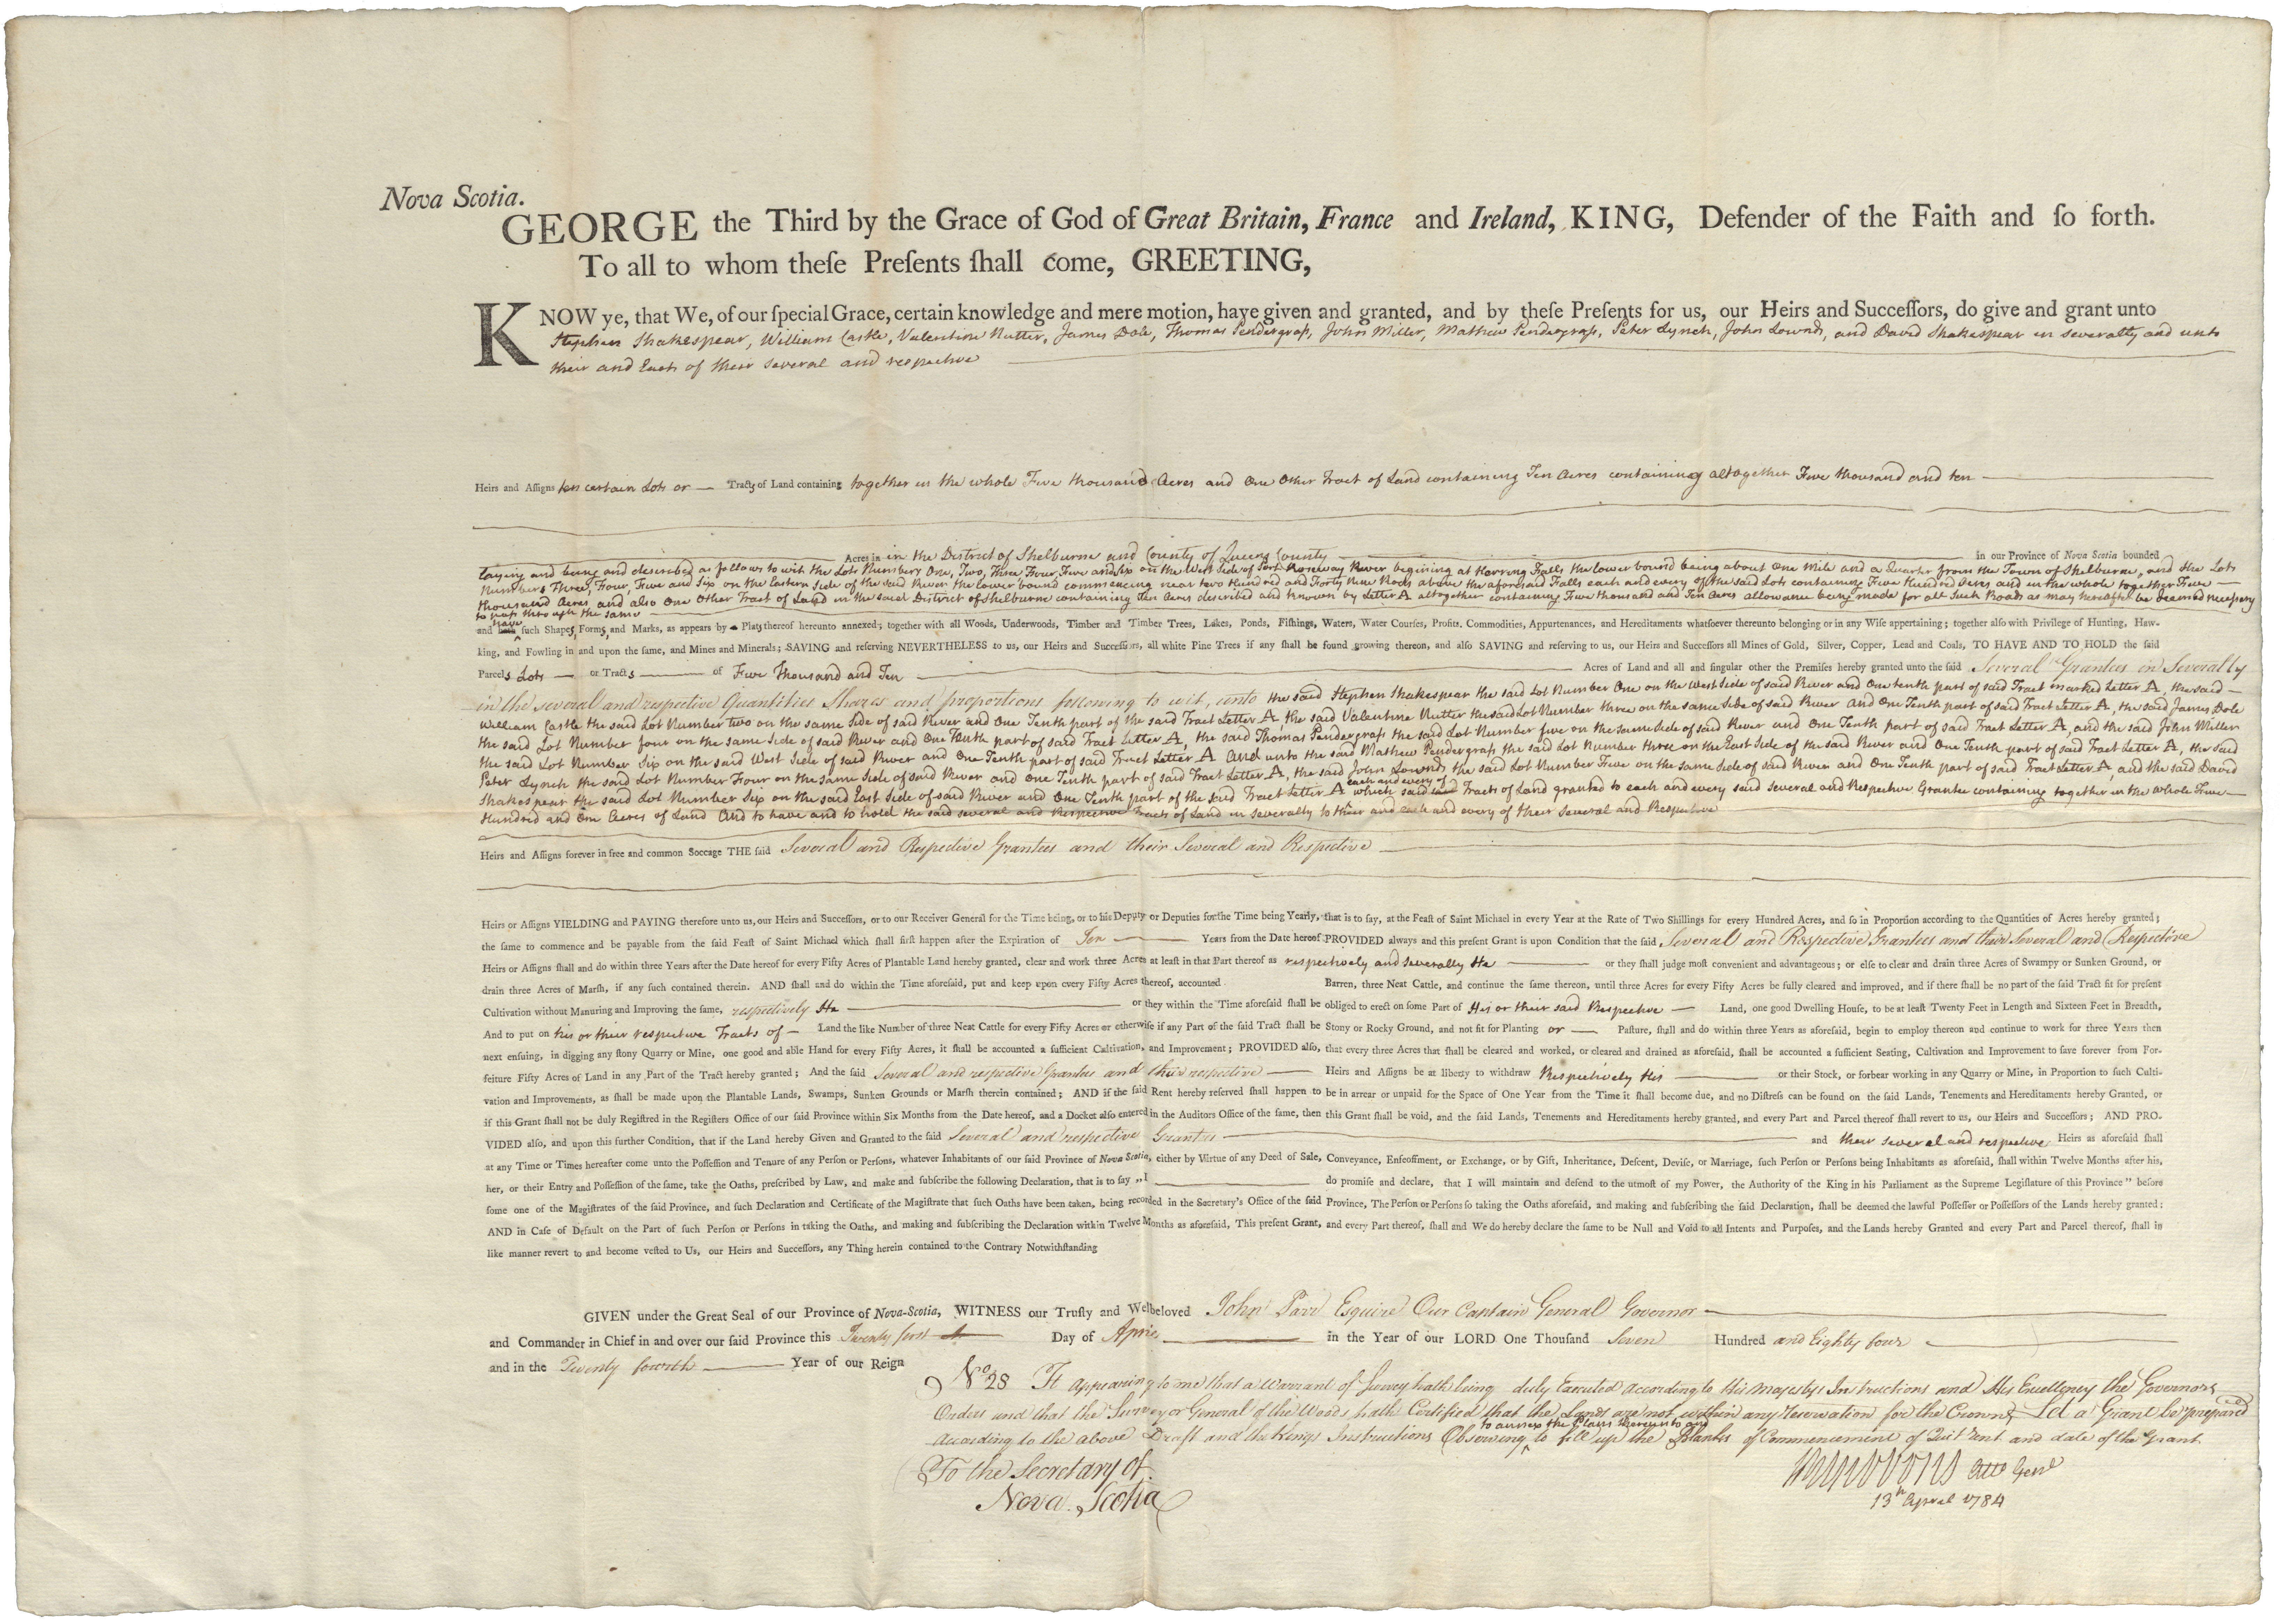 Nova Scotia.
GEORGE the Third by the Grace of God of Great Britain, France and Ireland, KING, Defender of the Faith and ſo forth.
To all to whom theſe Preſents ſhall come, GREETING,
KNOW ye, that We, of our ſpecial Grace, certain knowledge and mere motion, have given and granted, and by theſe Preſents for us, our Heirs and Succeſſors, do give and grant unto
Stephen Shakespear, William Castle, Valentine Nutter, James Dole, Thomas Pendergraſs, John Miller, Mathew Pendergraſs, Peter Lynch, John Lownds, and David Shakespear in severalty and unto
their and Each of their several and respective
Heirs and Aſſigns ten certain Lots or — Tracts of Land containing together in the whole Five thousand Acres and One Other Tract of Land containing Ten Acres containing altogether Five thousand and ten
Acres in in the District of Shelburne and County of Queens County in our Province of Nova Scotia bounded
laying and being and described as follows to wit the Lots Numbers One, Two, Three Four, Five and Six on the West Side of Port Roseway River begining at Herring Falls the lower bound being about One Mile and a Quarter from the Town of Shelburne, and the Lots
Numbers Three, Four, Five and Six on the Eastern Side of the said River the lower bound commencing near two Hundred and Forty Nine Rods above the aforesaid Falls each and every of the said Lots containing Five Hundred Acres and in the whole together Five —
thousand Acres and also One Other Tract of Land in the said District of Shelburne containing Ten Acres described and known by Letter A altogether containing Five thousand and Ten Acres allowance being made for all Such Roads as may hereafter be deemed necessary
to paſs through the same
and have such Shapes, Forms, and Marks, as appears by a Plat thereof hereunto annexed; together with all Woods, Underwoods, Timber and Timber Trees, Lakes, Ponds, Fiſhings, Waters, Water Courſes, Profits, Commodities, Appurtenances, and Hereditaments whatſoever thereunto belonging or in any Wiſe appertaining; together alſo with Privilege of Hunting, Haw-
king, and Fowling in and upon the ſame, and Mines and Minerals; SAVING and reſerving NEVERTHELESS to us, our Heirs and Succeſſors, all white Pine Trees if any ſhall be found growing thereon, and alſo SAVING and reſerving to us, our Heirs and Succeſſors all Mines of Gold, Silver, Copper, Lead and Coals, TO HAVE AND TO HOLD the ſaid
Parcels Lots — or Tracts — of Five Thousand and Ten — Acres of Land and all and ſingular other the Premiſes hereby granted unto the ſaid Several Grantees in Severalty
in the several and respective Quantities Shares and proportions following to wit, unto the said Stephen Shakespear the said Lot Number One on the West Side of said River and One tenth part of said Tract marked Letter A, the said —
William Castle the said Lot Number two on the same Side of said River and One Tenth part of the said Tract Letter A the said Valentine Nutter the said Lot Number three on the same Side of said River and One Tenth part of said Tract Letter A, the said James Dole
the said Lot Number four on the same Side of said River and One Tenth part of said Tract Letter A, the said Thomas Pendergraſs the said Lot Number five on the same Side of said River and One Tenth part of said Tract Letter A, and the said John Miller
the said Lot Number Six on the said West Side of said River and One Tenth part of said Tract Letter A And unto the said Mathew Pendergraſs the said Lot Number three on the East Side of the said River and One Tenth part of said Tract Letter A, the Said
Peter Lynch the said Lot Number Four on the same Side of said River and One Tenth part of said Tract Letter A, the said John Lownds the said Lot Number Five on the same Side of said River and One Tenth part of said Tract Letter A, and the said David
Shakespear the said Lot Number Six on the said East Side of said River and One Tenth part of the said Tract Letter A which said each and every of Tracts of Land granted to each and every said Several and Respective Grantee containing together in the whole Five —
Hundred and One Acres of Land And to have and to hold the said several and Respective Tracts of Land in severalty to their and each and every of their Several and Respective
Heirs and Aſſigns forever in free and common Soccage THE ſaid Several and Respective Grantees and their Several and Respective
Heirs or Aſſigns YIELDING and PAYING therefore unto us, our Heirs and Succeſſors, or to our Receiver General for the Time being, or to his Deputy or Deputies for the Time being Yearly, that is to ſay, at the Feaſt of Saint Michael in every Year at the Rate of Two Shillings for every Hundred Acres, and ſo in Proportion according to the Quantities of Acres hereby granted;
the ſame to commence and be payable from the ſaid Feaſt of Saint Michael which ſhall firſt happen after the Expiration of Ten — Years from the Date hereof PROVIDED always and this preſent Grant is upon Condition that the ſaid Several and Respective Grantees and their Several and Respective
Heirs or Aſſigns ſhall and do within three Years after the Date hereof for every Fifty Acres of Plantable Land hereby granted, clear and work three Acres at leaſt in that Part thereof as respectively and severally He — or they ſhall judge moſt convenient and advantageous; or elſe to clear and drain three Acres of Swampy or Sunken Ground, or
drain three Acres of Marſh, if any ſuch contained therein. AND ſhall and do within the Time aforeſaid, put and keep upon every Fifty Acres thereof, accounted Barren, three Neat Cattle, and continue the ſame thereon, until three Acres for every Fifty Acres be fully cleared and improved, and if there ſhall be no part of the ſaid Tract fit for preſent
Cultivation without Manuring and Improving the ſame, respectively He — or they within the Time aforeſaid ſhall be obliged to erect on ſome Part of His or their said Respective — Land, one good Dwelling Houſe, to be at leaſt Twenty Feet in Length and Sixteen Feet in Breadth,
And to put on his or their respective Tracts of — Land the like Number of three Neat Cattle for every Fifty Acres or otherwiſe if any Part of the ſaid Tract ſhall be Stony or Rocky Ground, and not fit for Planting or — Paſture, ſhall and do within three Years as aforeſaid, begin to employ thereon and continue to work for three Years then
next enſuing, in digging any ſtony Quarry or Mine, one good and able Hand for every Fifty Acres, it ſhall be accounted a ſufficient Cultivation, and Improvement; PROVIDED alſo, that every three Acres that ſhall be cleared and worked, or cleared and drained as aforeſaid, ſhall be accounted a ſufficient Seating, Cultivation and Improvement to ſave forever from For-
feiture Fifty Acres of Land in any Part of the Tract hereby granted; And the ſaid Several and respective Grantees and their respective — Heirs and Aſſigns be at liberty to withdraw Respectively His — or their Stock, or forbear working in any Quarry or Mine, in Proportion to ſuch Culti-
vation and Improvements, as ſhall be made upon the Plantable Lands, Swamps, Sunken Grounds or Marſh therein contained; AND if the ſaid Rent hereby reſerved ſhall happen to be in arrear or unpaid for the Space of One Year from the Time it ſhall become due, and no Diſtreſs can be found on the ſaid Lands, Tenements and Hereditaments hereby Granted, or
if this Grant ſhall not be duly Regiſtred in the Regiſters Office of our ſaid Province within Six Months from the Date hereof, and a Docket alſo entered in the Auditors Office of the ſame, then this Grant ſhall be void, and the ſaid Lands, Tenements and Hereditaments hereby granted, and every Part and Parcel thereof ſhall revert to us, our Heirs and Succeſſors; AND PRO-
VIDED alſo, and upon this further Condition, that if the Land hereby Given and Granted to the ſaid Several and respective Grantees — and their several and respective Heirs as aforeſaid ſhall
at any Time or Times hereafter come unto the Poſſeſſion and Tenure of any Perſon or Perſons, whatever Inhabitants of our ſaid Province of Nova Scotia, either by Virtue of any Deed of Sale, Conveyance, Enfeoffment, or Exchange, or by Gift, Inheritance, Deſcent, Deviſe, or Marriage, ſuch Perſon or Perſons being Inhabitants as aforeſaid, ſhall within Twelve Months after his,
her, or their Entry and Poſſeſſion of the ſame, take the Oaths, preſcribed by Law, and make and ſubſcribe the following Declaration, that is to ſay „I — do promiſe and declare, that I will maintain and defend to the utmoſt of my Power, the Authority of the King in his Parliament as the Supreme Legiſlature of this Province" before
ſome one of the Magiſtrates of the ſaid Province, and ſuch Declaration and Certificate of the Magiſtrate that ſuch Oaths have been taken, being recorded in the Secretary's Office of the ſaid Province, The Perſon or Perſons ſo taking the Oaths aforeſaid, and making and ſubſcribing the ſaid Declaration, ſhall be deemed the lawful Poſſeſſor or Poſſeſſors of the Lands hereby granted;
AND in Caſe of Default on the Part of ſuch Perſon or Perſons in taking the Oaths, and making and ſubſcribing the Declaration within Twelve Months as aforeſaid, This preſent Grant, and every Part thereof, ſhall and We do hereby declare the ſame to be Null and Void to all Intents and Purpoſes, and the Lands hereby Granted and every Part and Parcel thereof, ſhall in
like manner revert to and become veſted to Us, our Heirs and Succeſſors, any Thing herein contained to the Contrary Notwithſtanding
GIVEN under the Great Seal of our Province of Nova-Scotia, WITNESS our Truſty and Welbeloved John Parr Esquire Our Captain General Governor
and Commander in Chief in and over our ſaid Province this Twenty first Day of April in the Year of our LORD One Thouſand Seven Hundred and Eighty four
and in the Twenty fourth Year of our Reign
No 28 It appearing to me that a Warrant of Survey hath being duly Executed according to His Majestys Instructions and His Excellency the Governors
Orders and that the Surveyor General of the Woods hath Certified that the Lands are not within any reservation for the Crown, Let a Grant be prepared
to annex the Plan thereunto and
According to the above Draft and the Kings Instructions Observing to fill up the Blanks of Commencement of Quit Rent and date of the Grant
To the Secretary of
Nova Scotia
Atto Genl
13th April 1784